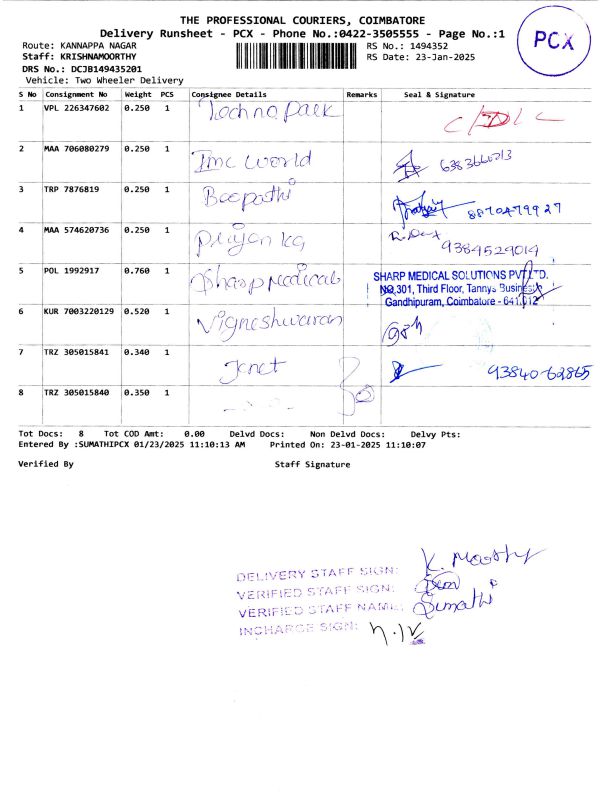 THE PROFESSIONAL COURIERS, COIMBATORE
Delivery Runsheet - PCX - Phone No.:0422-3505555 - Page No.:1
PCX
Route: KANNAPPA NAGAR RS No.: 1494352
Staff: KRISHNAMOORTHY RS Date: 23-Jan-2025
DRS No.: DCJB149435201
Vehicle: Two Wheeler Delivery
S No Consignment No Weight PCS Consignee Details Remarks Seal & Signature
1 VPL 226347602 0.250 1 Techno Park
2 MAA 706080279 0.250 1 Imc world
3 TRP 7876819 0.250 1 Boopathi 8870479927
4 MAA 574620736 0.250 1 9384529019
5 POL 1992917 0.760 1 Sharp Medical SHARP MEDICAL SOLUTIONS PVT LTD.
NO.301, Third Floor, Tannys Business
Gandhipuram, Coimbatore - 641 012
6 KUR 7003220129 0.520 1 Vigneshwaran
7 TRZ 305015841 0.340 1 Janet 93840 62865
8 TRZ 305015840 0.350 1
Tot Docs: 8 Tot COD Amt: 0.00 Delvd Docs: Non Delvd Docs: Delvy Pts:
Entered By :SUMATHIPCX 01/23/2025 11:10:13 AM Printed On: 23-01-2025 11:10:07
Verified By Staff Signature
DELIVERY STAFF SIGN: K. Moorthy
VERIFIED STAFF SIGN:
VERIFIED STAFF NAME: Sumathi
INCHARGE SIGN: